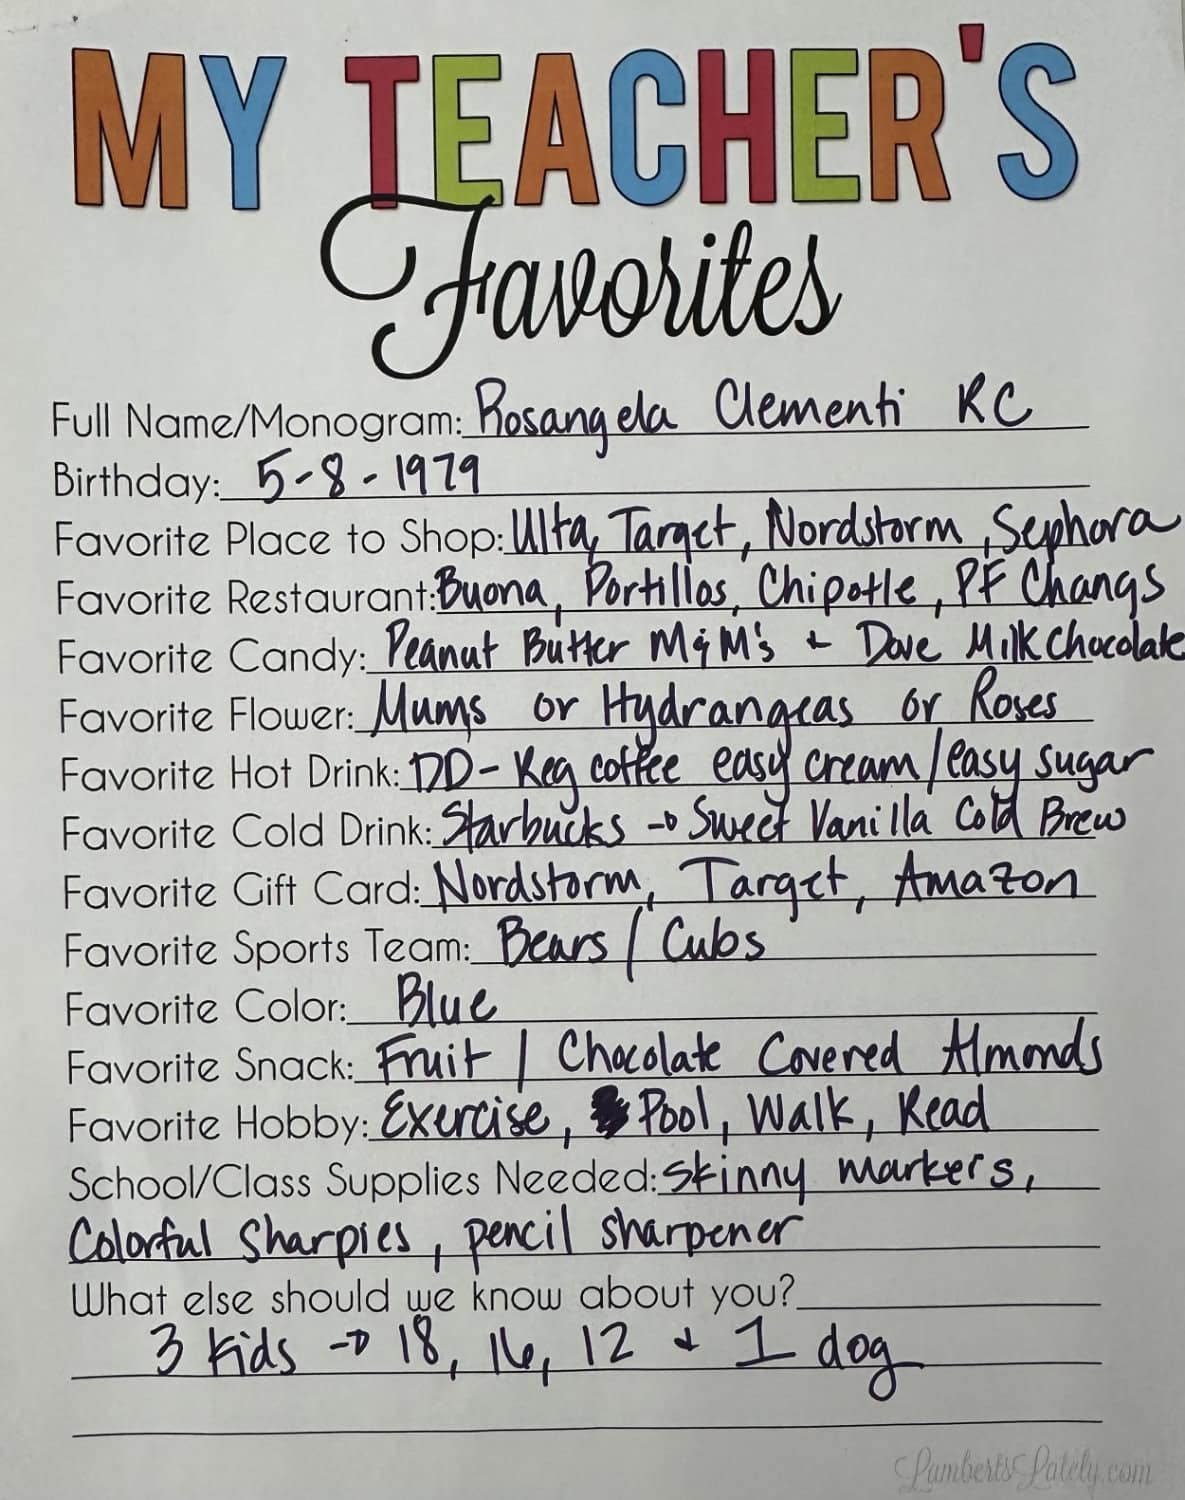 MY TEACHER'S
Favorites
Full Name/Monogram: Rosangela Clementi RC
Birthday: 5-8-1979
Favorite Place to Shop: Ulta, Target, Nordstorm, Sephora
Favorite Restaurant: Buona, Portillos, Chipotle, PF Changs
Favorite Candy: Peanut Butter M&M's + Dove Milk Chocolate
Favorite Flower: Mums or Hydrangeas or Roses
Favorite Hot Drink: DD- Reg coffee easy cream/easy sugar
Favorite Cold Drink: Starbucks → Sweet Vanilla Cold Brew
Favorite Gift Card: Nordstorm, Target, Amazon
Favorite Sports Team: Bears / Cubs
Favorite Color: Blue
Favorite Snack: Fruit / Chocolate Covered Almonds
Favorite Hobby: Exercise, Pool, Walk, Read
School/Class Supplies Needed: skinny markers,
Colorful Sharpies, pencil sharpener
What else should we know about you?
3 kids → 18, 16, 12 + 1 dog
LambertsLately.com